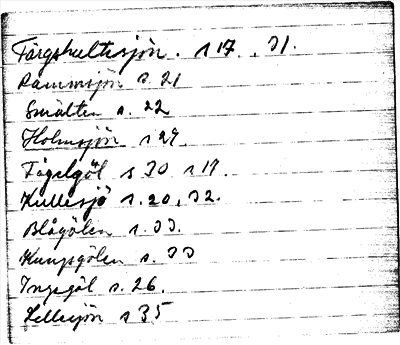 Färgshultssjön. s 17., 31.
Rammsjön s. 21
Smälten s. 22
Holmsjön s 29.
Fågelgöl s 30 s 19.
Kullesjö s. 20, 32.
Blågölen s. 33.
Kungsgölen s. 33
Ingsgöl s. 26.
Hellsjön s 35